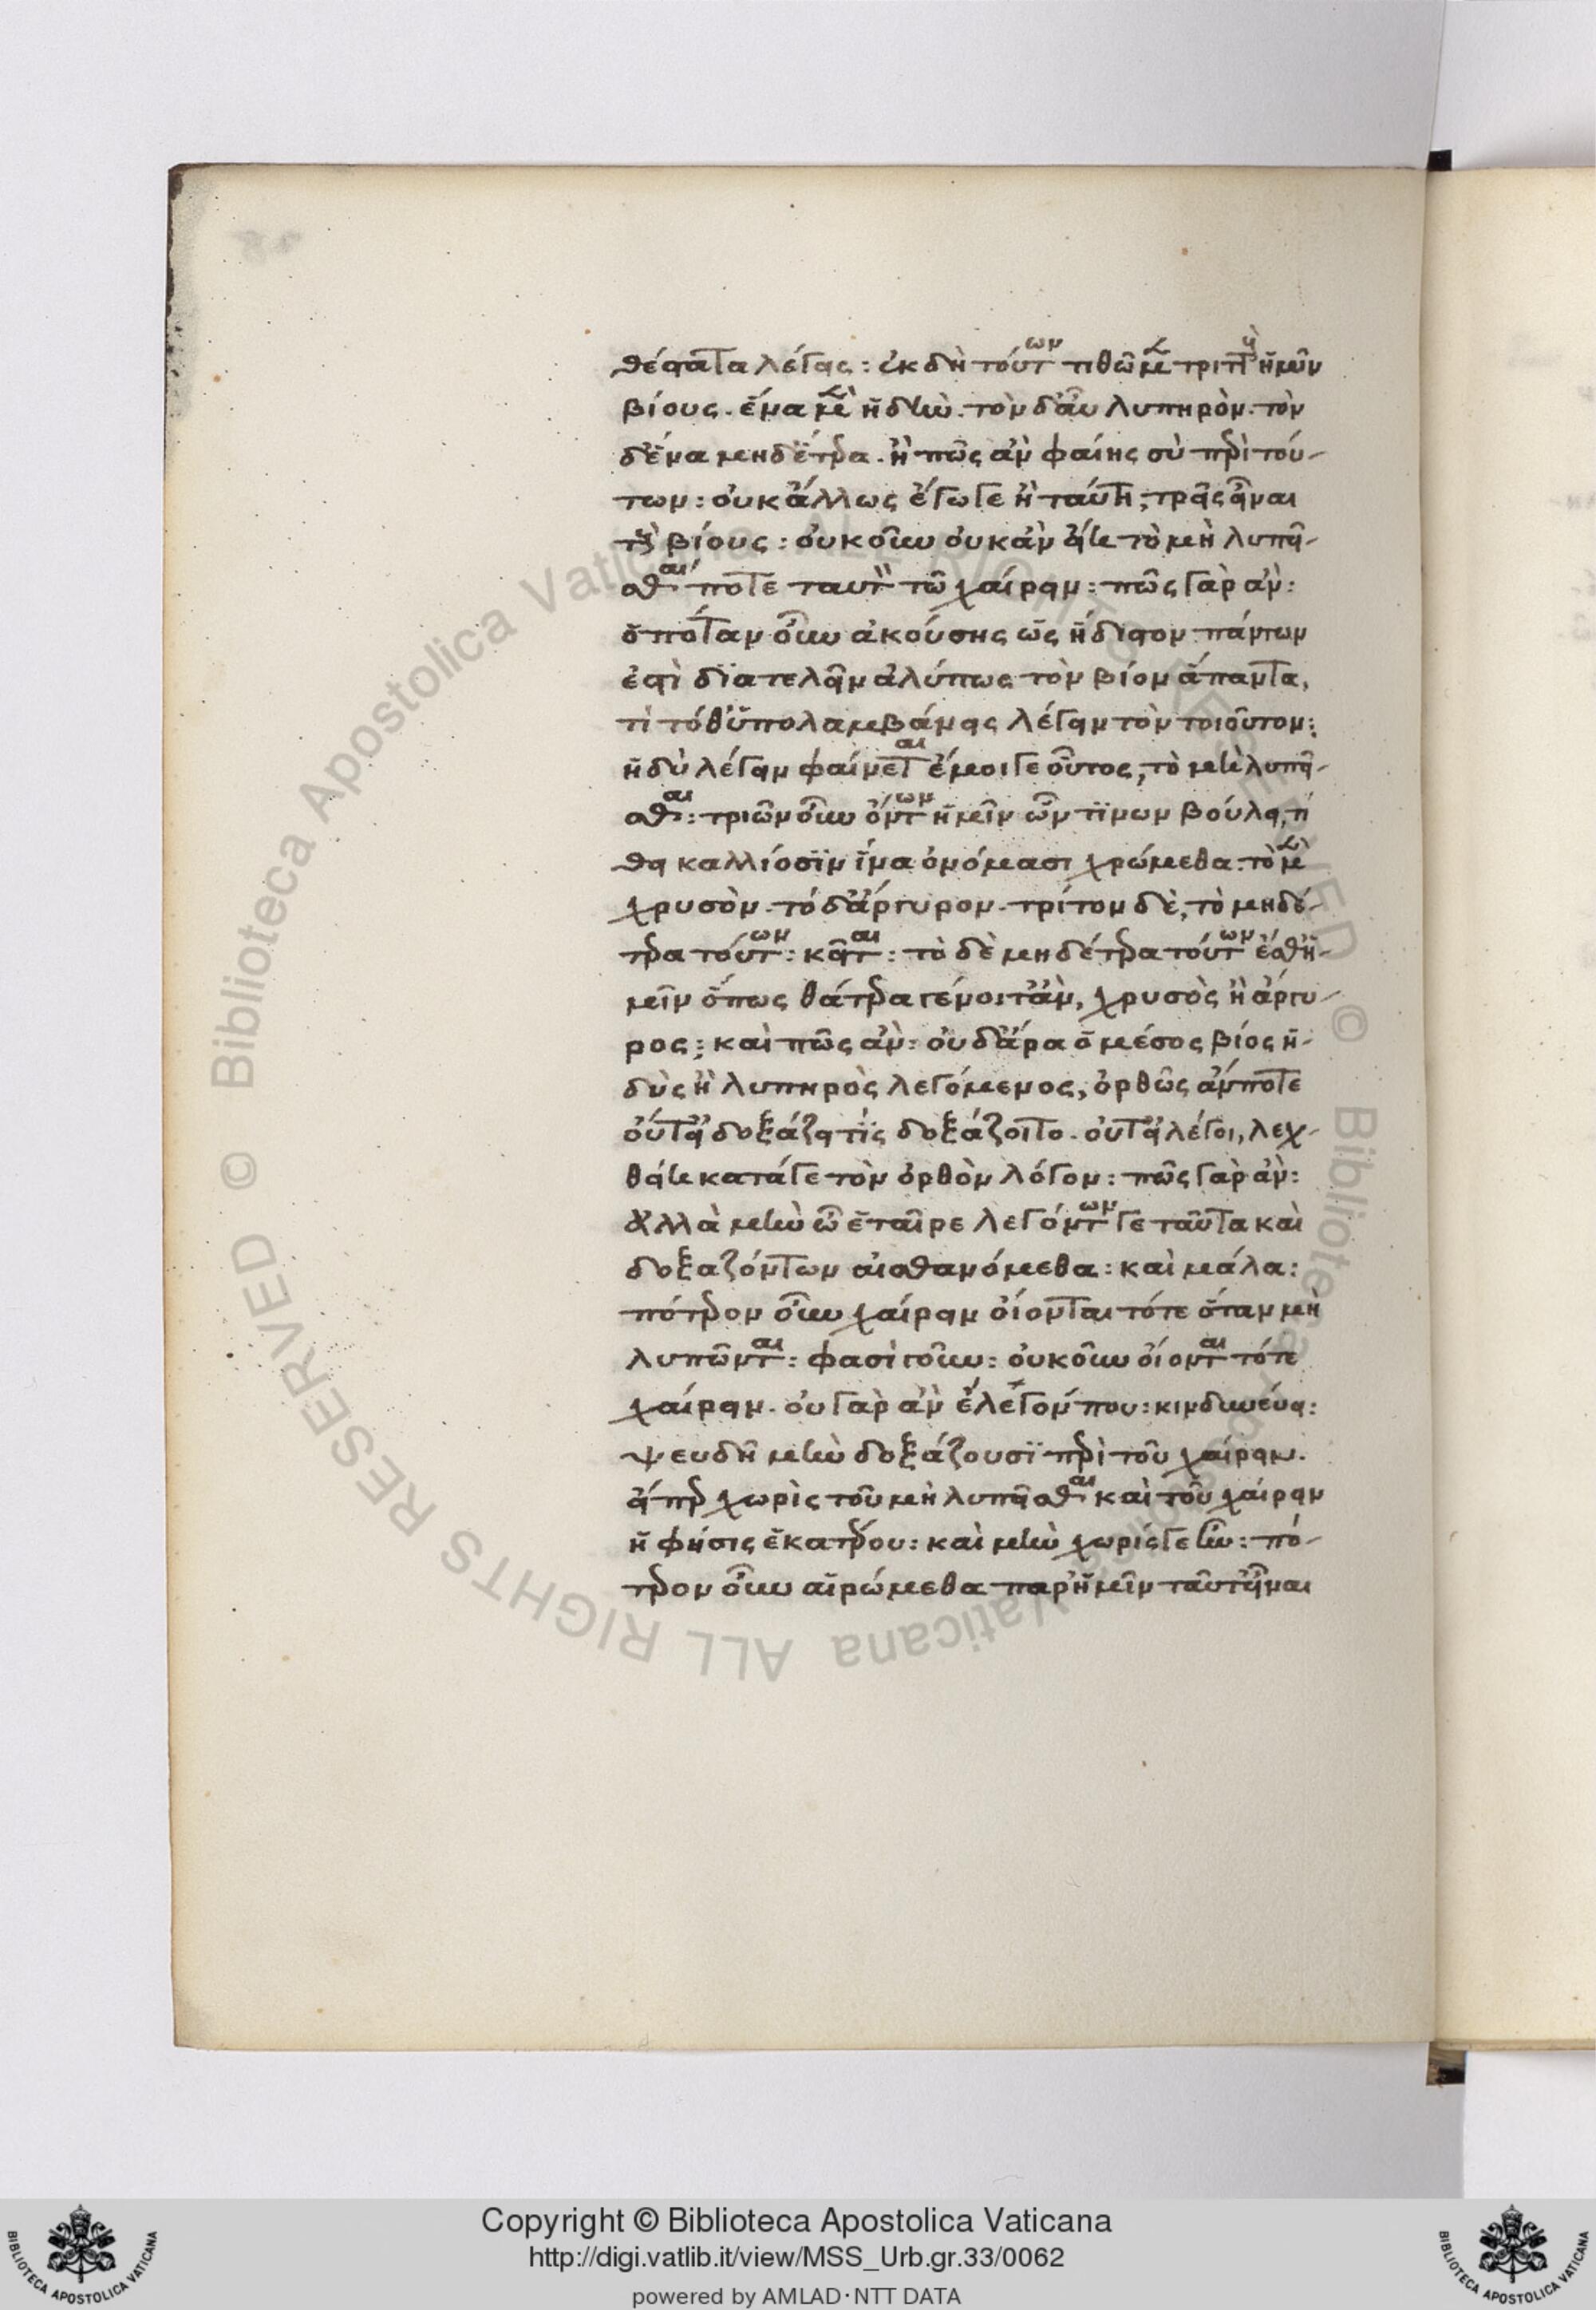 θέστατα λέγεις : ἐκ δὴ τούτων τιθῶμεν τρι\ττ/οὺς ἡμῖν
βίους . ἕνα μὲν ἡδὺν . τὸν δ' αὖ λυπηρὸν . τὸν
δ' ἕνα μηδέτερα . ἢ πῶς ἂν φαίης σὺ περὶ τού-
των : οὐκ ἄλλως ἔγωγε ἢ ταύτη, τρεῖς εἶναι
τοὺς βίους : οὐκοῦν οὐκ ἂν εἴη τὸ μὴ λυπεῖ-
σθαί ποτε ταυτὸν τῶ χαίρειν : πῶς γὰρ ἄν :
ὁπόταν οὖν ἀκούσης ὡς ἥδιστον πάντων
ἐστὶ διατελεῖν ἀλύπως τὸν βίον ἅπαντα,
τί τόθ' ὑπολαμβάνεις λέγειν τὸν τοιοῦτον :
ἡδὺ λέγειν φαίνεται ἔμοιγε οὗτος, τὸ μὴ λυπεῖ-
σθαι : τριῶν οὖν ὄντων ἡμῖν ὧν τινων βούλει, τί
θει καλλίοσιν ἵνα ὀνόμασι χρώμεθα . τὸ μὲν
χρυσὸν . τὸ δ' ἄργυρον . τρίτον δὲ, τὸ μηδέ-
τερα τούτων : κεῖται : τὸ δὲ μηδέτερα τούτων ἔσθ' ἡ-
μῖν ὅπως θάτερα γένοιτ' ἂν, χρυσὸς ἢ ἄργυ-
ρος : καὶ πῶς ἄν : οὐδ' ἄρα ὁ μέσος βίος ἡ-
δὺς ἢ λυπηρὸς λεγόμενος, ὀρθῶς ἄν ποτε
οὔτ' εἰ δοξάζει τίς δοξάζοιτο . οὔτ' εἰ λέγοι, λεχ-
θείη κατά γε τὸν ὀρθὸν λόγον : πῶς γὰρ ἄν :
ἀλλὰ μὴν ὦ ἑταῖρε λεγόντων γε ταῦτα καὶ
δοξαζόντων αἰσθανόμεθα : καὶ μάλα :
πότερον οὖν χαίρειν οἴονται τότε ὅταν μὴ
λυπῶνται : φασὶ γοῦν : οὐκοῦν οἴονται τότε
χαίρειν . οὐ γὰρ ἂν ἔλεγόν που : κινδυνεύει :
ψευδῆ μὴν δοξάζουσι περὶ τοῦ χαίρειν .
εἴπερ χωρὶς τοῦ μὴ λυπεῖσθαι καὶ τοῦ χαίρειν
ἡ φύσις ἑκατέρου : καὶ μὴν χωρίς γε ἦν : πό-
τερον οὖν αἱρώμεθα παρ' ἡμῖν ταῦτ' εἶναι
Copyright © Biblioteca Apostolica Vaticana
http://digi.vatlib.it/view/MSS_Urb.gr.33/0062
powered by AMLAD·NTT DATA